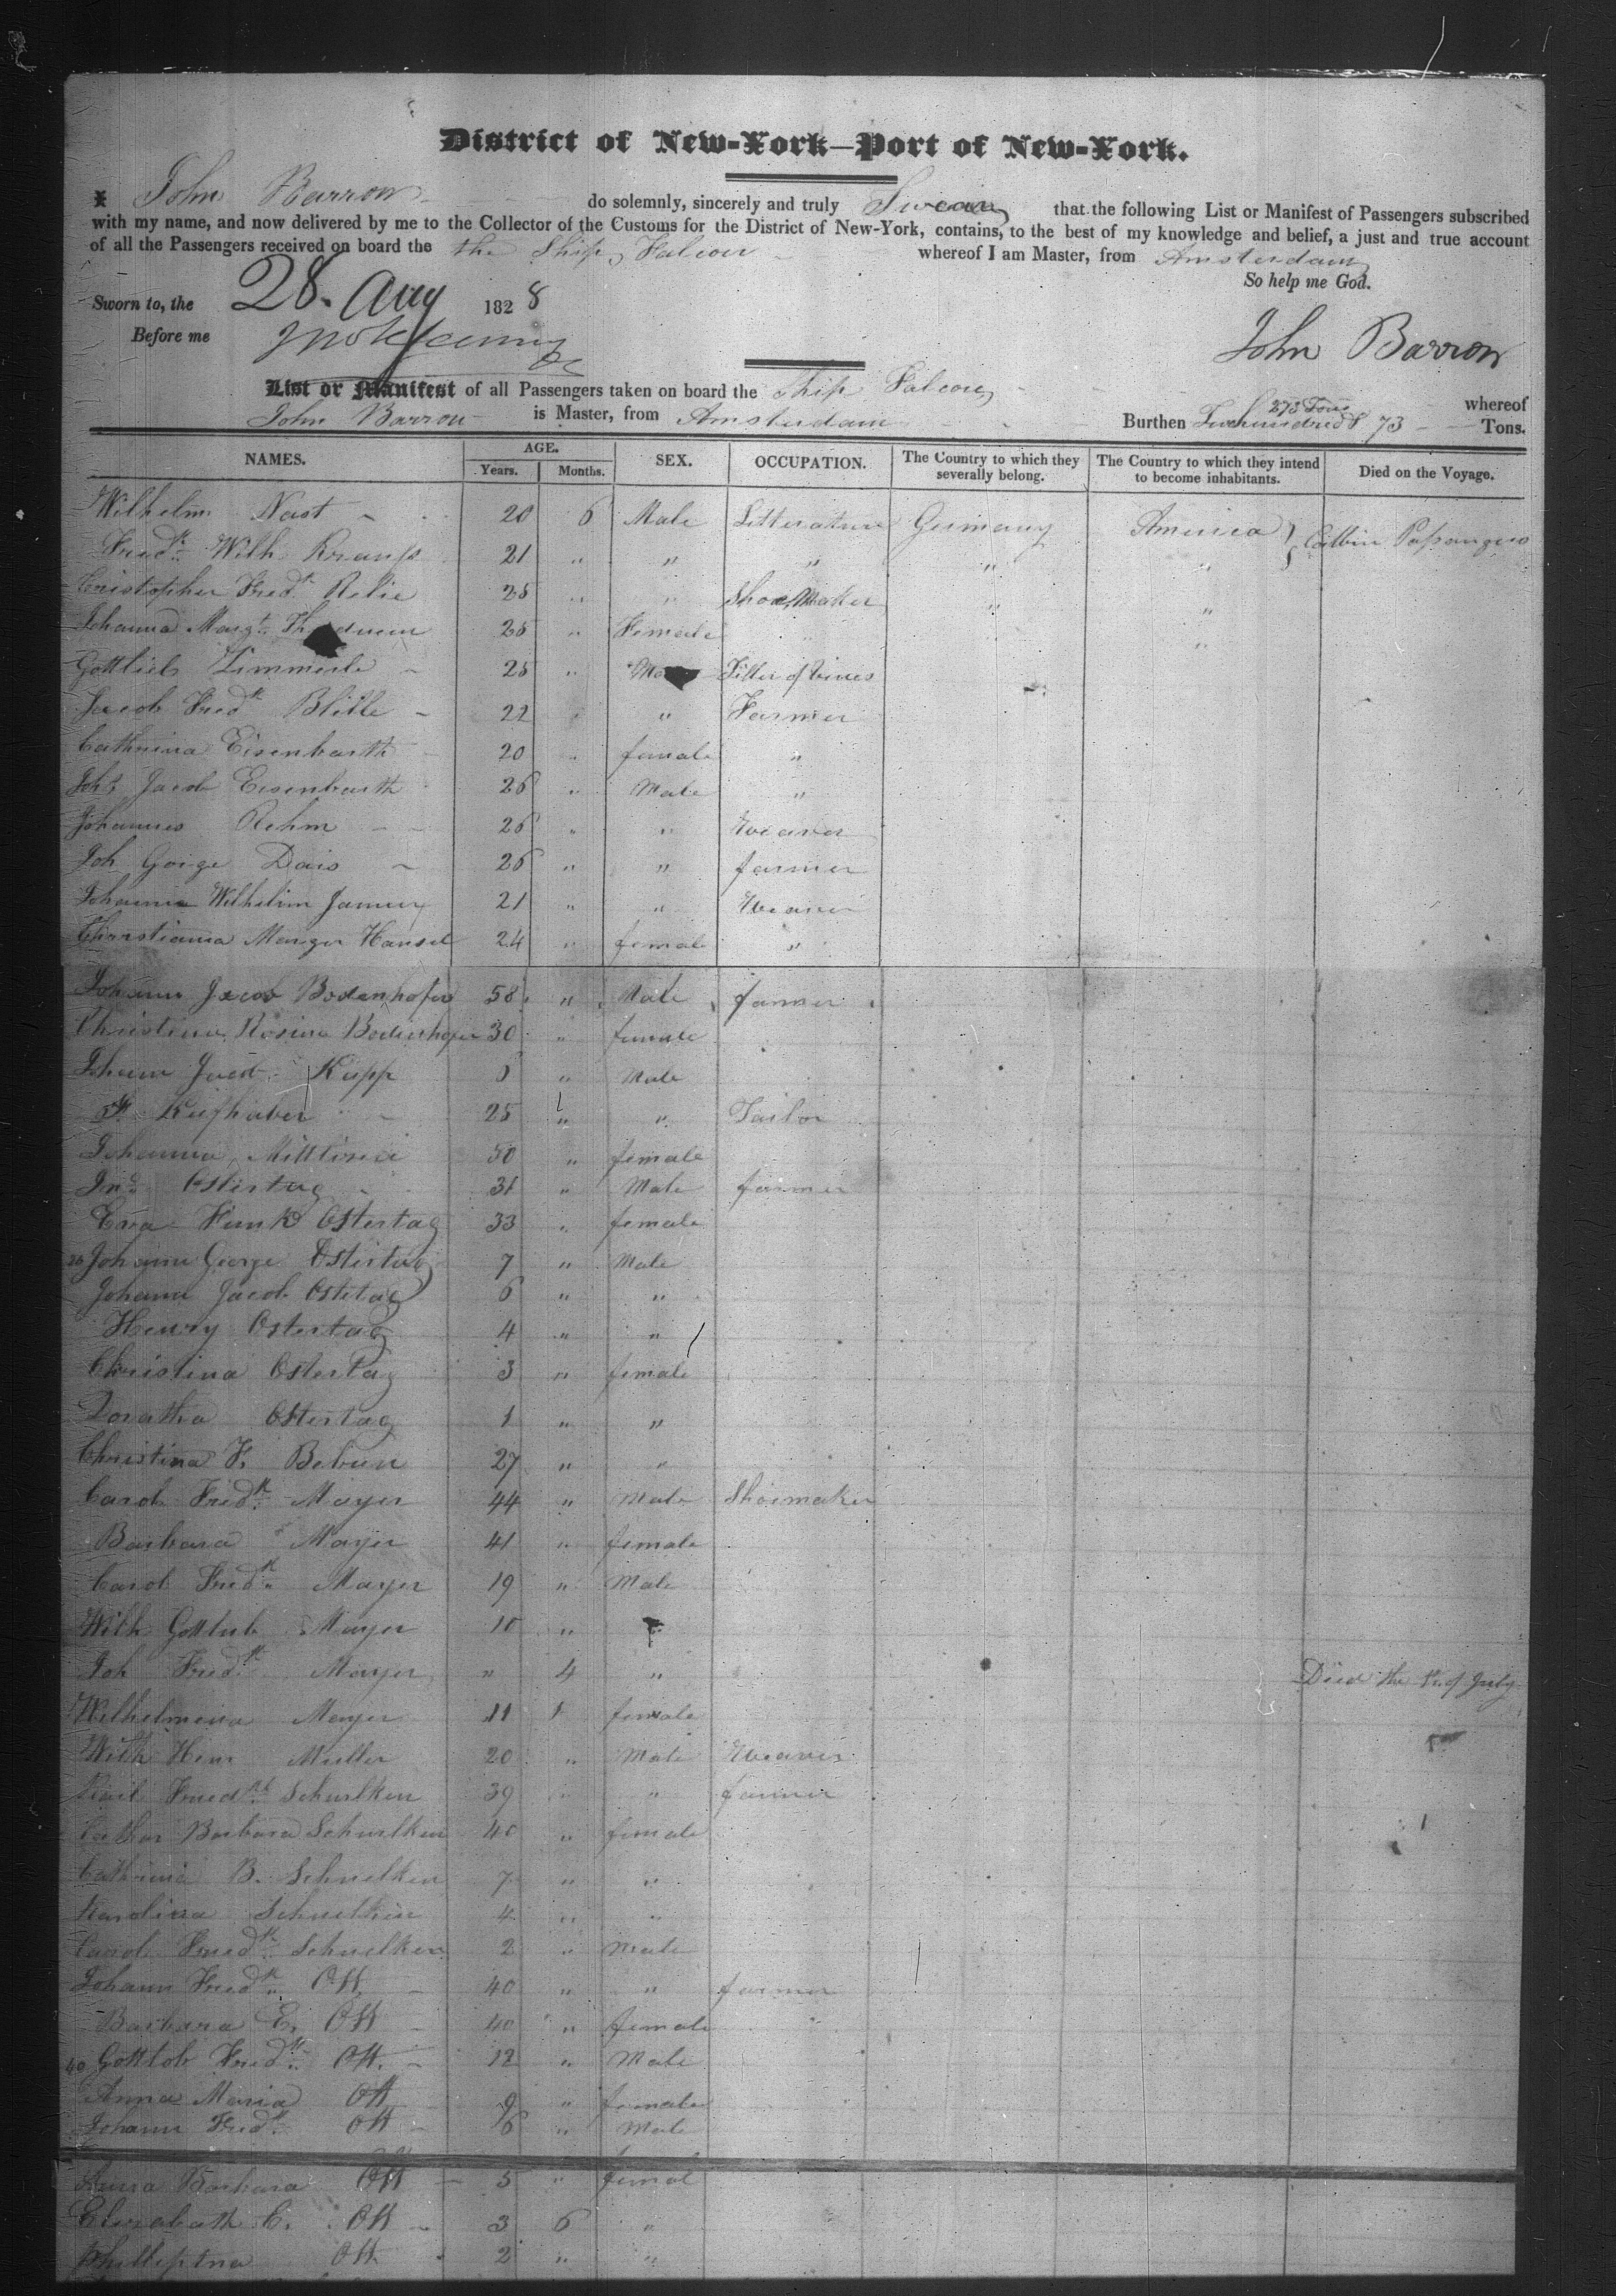 District of New-York—Port of New-York.
I John Barron do solemnly, sincerely and truly Swear that the following List or Manifest of Passengers subscribed
with my name, and now delivered by me to the Collector of the Customs for the District of New-York, contains, to the best of my knowledge and belief, a just and true account
of all the Passengers received on board the the Ship Falcon whereof I am Master, from Amsterdam
So help me God.
Sworn to, the 28. Aug 1828
Before me
John Barron
List or Manifest of all Passengers taken on board the Ship Falcon whereof
John Barron is Master, from Amsterdam Burthen Twohundred & 73 Tons.
273 Tons
NAMES. AGE. SEX. OCCUPATION. The Country to which they severally belong. The Country to which they intend to become inhabitants. Died on the Voyage.
Years. Months.
Wilhelm Nast 20 6 Male Litterature Germany America } Cabbin Passangers
Fredk. Wilh 21 " " " " "
Cristopher Fredk 25 " " Shoe Maker " "
Johanna Margt. 25 " Female " "
Gottlieb Zimmerle 25 " Ma Tiller of Vines
Jacob Fredk 22 " " Farmer
Cathrina Eisenbarth 20 " female "
Joh. Jacob Eisenbarth 26 " Male "
Johannes Rehm 26 " " Weaver
Joh Gorge Dais 26 " " farmer
Wilhelm 21 " " Weaver
Christiana Hansel 24 " female "
Johann Jacob Bodenhofer 58 " Male farmer
Christina Rosina Bodenhofer 30 " female
Kapp " Male
25 " " Tailor
Johanna 50 " female
Ostertag 31 " Male farmer
Eva Funk Ostertag 33 " female
20 Johann George Ostertag 7 " Male
Johann Jacob Ostertag 6 " "
Henry Ostertag 4 " "
Christina Ostertag 3 " female
Doratha Ostertag 1 " "
Christina F. 27 " "
Carob Fredk. Mayer 44 " Male Shoemaker
Barbara Mayer 41 " female
Carob Fredk. Mayer 19 " Male
Wilh Gottlieb Mayer 10 "
Joh Fredk. Mayer " 4 " Died the of July
Wilhelmina Mayer 11 1 female
Wilh Muller 20 " Male Weaver
39 " " farmer
Barbara 40 " female
Cathrina B. Schuelken 7 " "
Karolina Schuelken 4 " "
Carob Fredk. Schuelken 2 " Male
Johann Fredk. Ott 40 " " farmer
Barbara E. Ott 40 " female "
40 Gottlob Fredk. Ott 12 " Male
Anna Maria Ott 9 " female
Johann Fredk. Ott 6 " Male
Anna Barbara Ott 5 " femal
Elizabath C. Ott 3 6 "
Phillipina Ott 2 " "